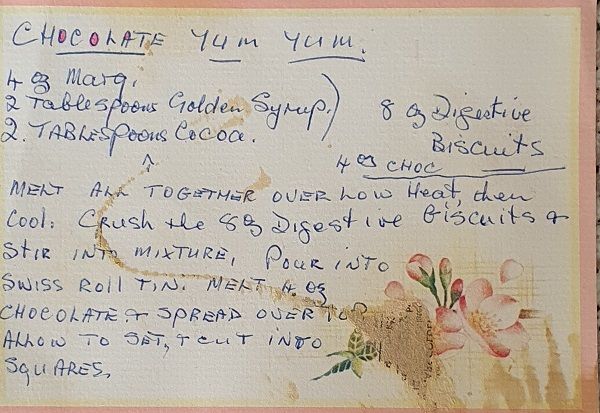 CHOCOLATE YUM YUM.
4 oz Marg.
2 Tablespoons Golden Syrup.) 8 oz Digestive
2. TABLESpoons Cocoa. BISCUITS
4 oz CHOC
MELT ALL TOGETHER OVER LOW Heat, then
Cool. Crush the 8 oz Digestive Biscuits &
STIR INTO MIXTURE, POUR INTO
SWISS ROLL TIN. MELT 4 oz
CHOCOLATE & SPREAD OVER TOP
ALLOW TO SET, & CUT INTO
SQUARES.